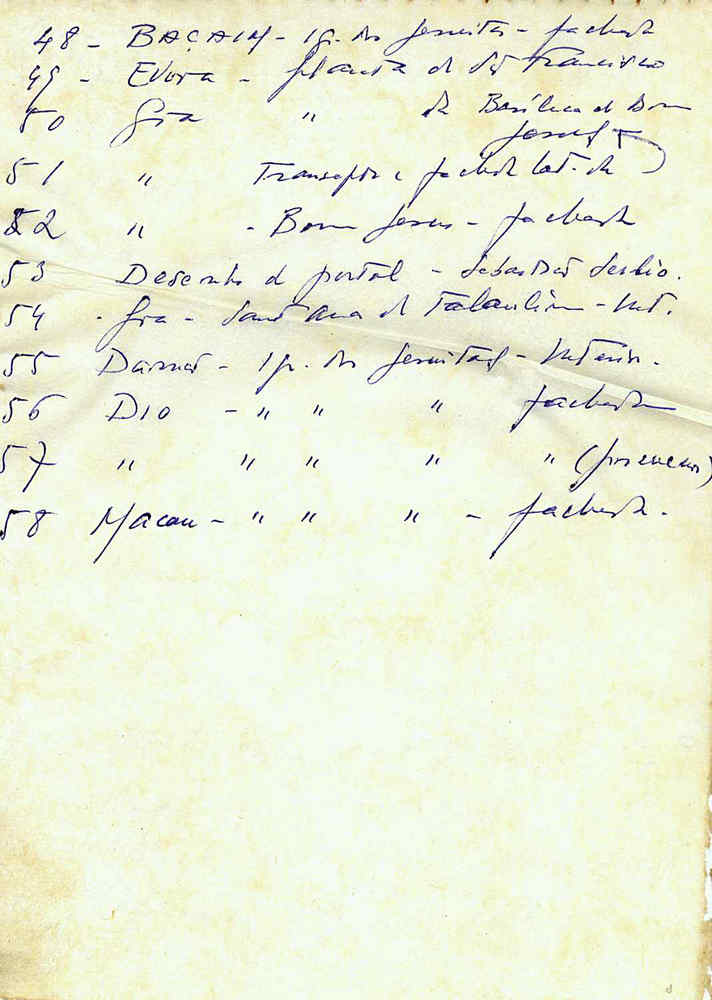 48 - BAÇAIM - Ig. dos Jesuitas - fachada
49 - Evora - planta de São Francisco
50 Goa " da Basílica do Bom
Jesus
51 " Transepto e fachada lat. da
52 " - Bom Jesus - fachada
53 Desenho de portal - Sebastião Serlio.
54 - Goa - Sant'Ana de Talaulim - Int.
55 Damão - Ig. dos Jesuitas - Interior.
56 DIO - " " " fachada
57 " " " " " (pormenor)
58 Macau - " " " - fachada.